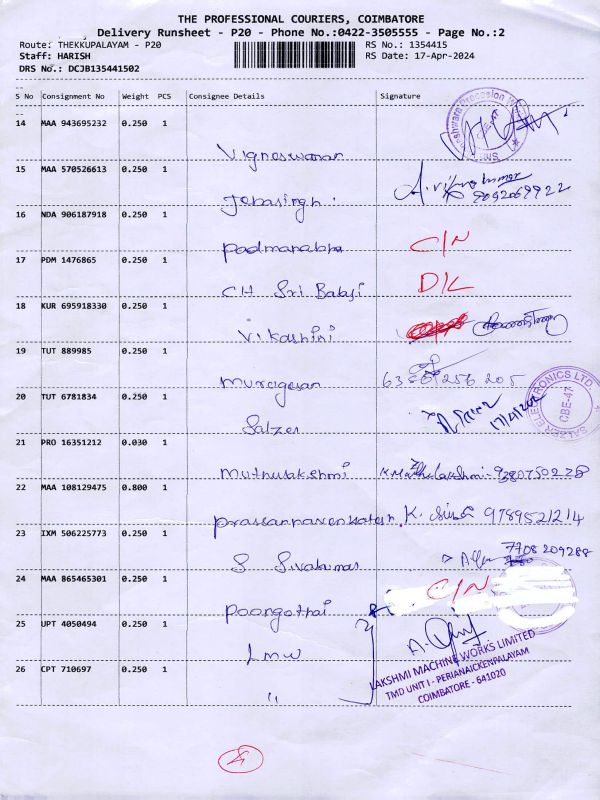 THE PROFESSIONAL COURIERS, COIMBATORE
Delivery Runsheet - P20 - Phone No.:0422-3505555 - Page No.:2
Route: THEKKUPALAYAM - P20
RS No.: 1354415
Staff: HARISH
RS Date: 17-Apr-2024
DRS No.: DCJB135441502
S No Consignment No Weight PCS Consignee Details Signature
14 MAA 943695232 0.250 1
Vigneswaran
15 MAA 570526613 0.250 1
Jebasingh
9092069922
16 NDA 906187918 0.250 1
Padmanabha C/N
17 PDM 1476865 0.250 1
CH Sri Balaji D/L
18 KUR 695918330 0.250 1
Vikashini
19 TUT 889985 0.250 1
Murugesan
20 TUT 6781834 0.250 1
Salzer
SALZER ELECTRONICS LTD.
CBE-47
21 PRO 16351212 0.030 1
Muthulakshmi 9380750228
22 MAA 108129475 0.800 1
Prassannavenkatesh K. 9789521214
23 IXM 506225773 0.250 1
S Sivakumar 7708209288
24 MAA 865465301 0.250 1
Poongothai C/N
25 UPT 4050494 0.250 1
LMW
LAKSHMI MACHINE WORKS LIMITED
TMD UNIT I - PERIANAICKENPALAYAM
COIMBATORE - 641020
26 CPT 710697 0.250 1
"